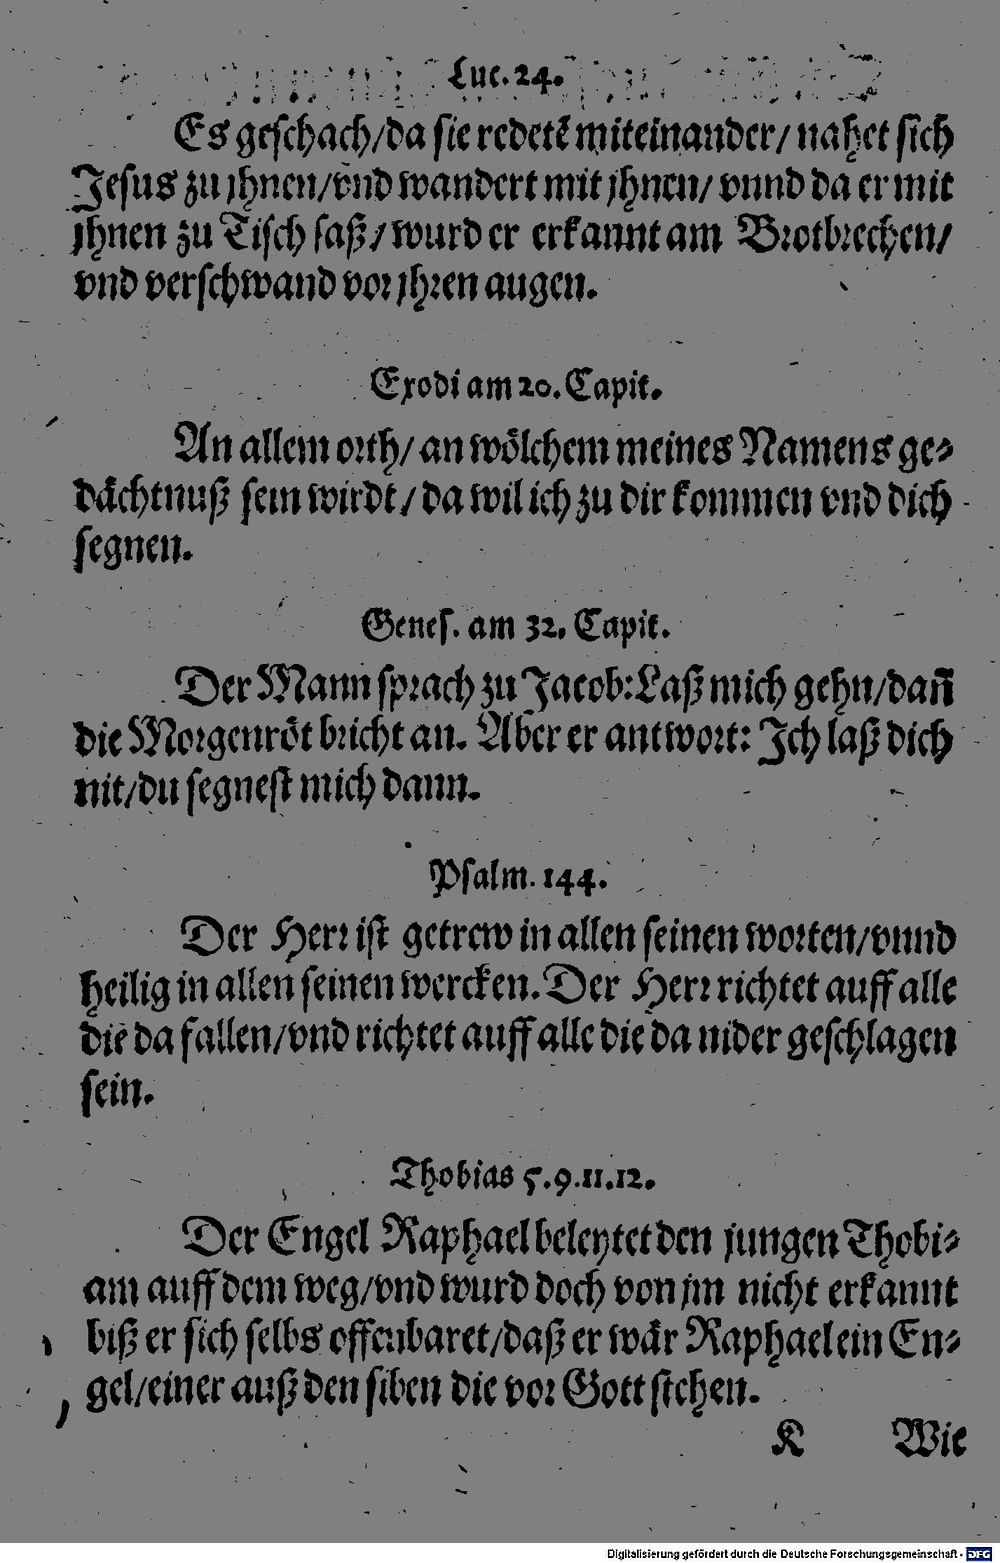 Luc. 24.
Es geschach/da sie redetẽ miteinander/ nahet sich
Jesus zu jhnen/vnd wandert mit jhnen/ vnnd da er mit
jhnen zu Tisch saß/wurd er erkannt am Brotbrechen/
vnd verschwand vor jhren augen.
Exodi am 20. Capit.
An allem orth/ an wölchem meines Namens ge-
dächtnuß sein wirdt/da wil ich zu dir kommen vnd dich
segnen.
Genes. am 32. Capit.
Der Mann sprach zu Jacob: Laß mich gehn/dañ
die Morgenröt bricht an. Aber er antwort: Ich laß dich
nit/du segnest mich dann.
Psalm. 144.
Der Herr ist getrew in allen seinen worten/vnnd
heilig in allen seinen wercken. Der Herr richtet auff alle
die da fallen/vnd richtet auff alle die da nider geschlagen
sein.
Thobias 5.9.11.12.
Der Engel Raphael beleytet den jungen Thobi-
am auff dem weg/vnd wurd doch von jm nicht erkannt
biß er sich selbs offenbaret/daß er wär Raphael ein En-
gel/einer auß den siben die vor Gott stehen.
K Wie
Digitalisierung gefördert durch die Deutsche Forschungsgemeinschaft - DFG